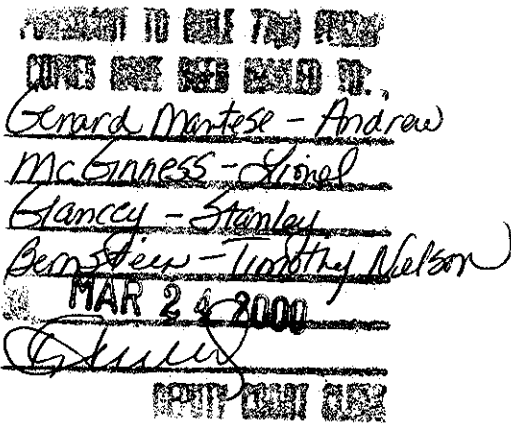 PURSUANT TO RULE 77(d) FRCvP
COPIES HAVE BEEN MAILED TO:
Gerard Mantese - Andrew
McGinness - Lionel
Glancey - Stanley
Bernstein - Timothy Nelson
MAR 24 2000
DEPUTY COURT CLERK